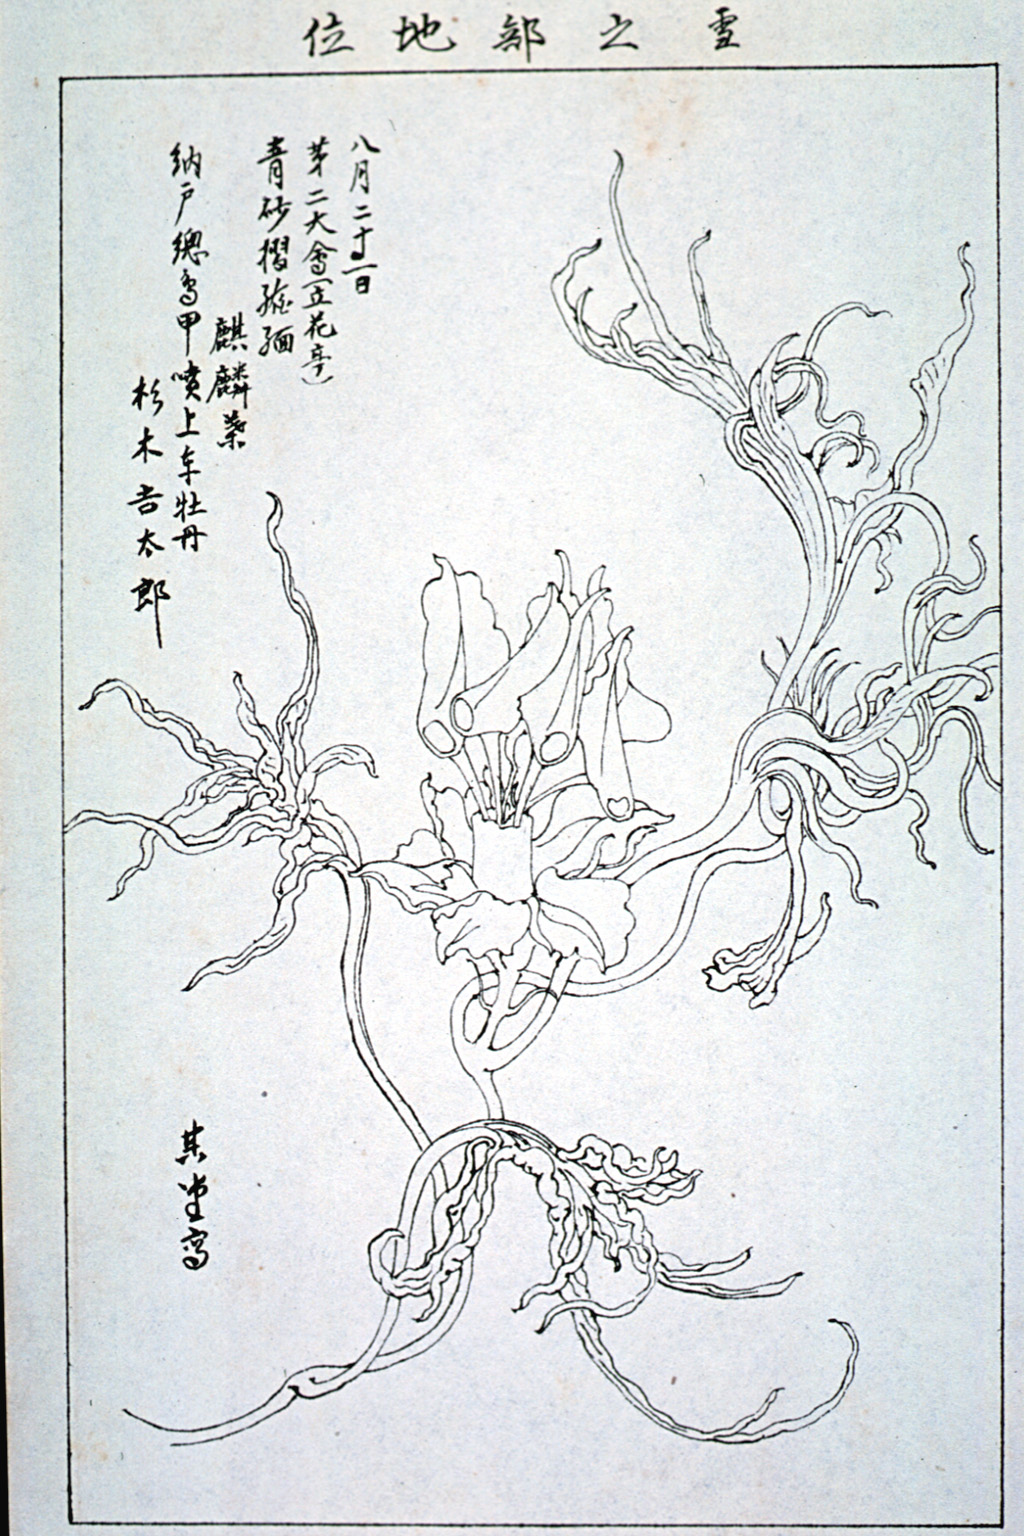 雪之部地位
八月二十一日
第二大會(立花亭)
青砂摺
麒麟葉
納戸總鳥甲噴上車牡丹
杉木吉太郎
其堂寫